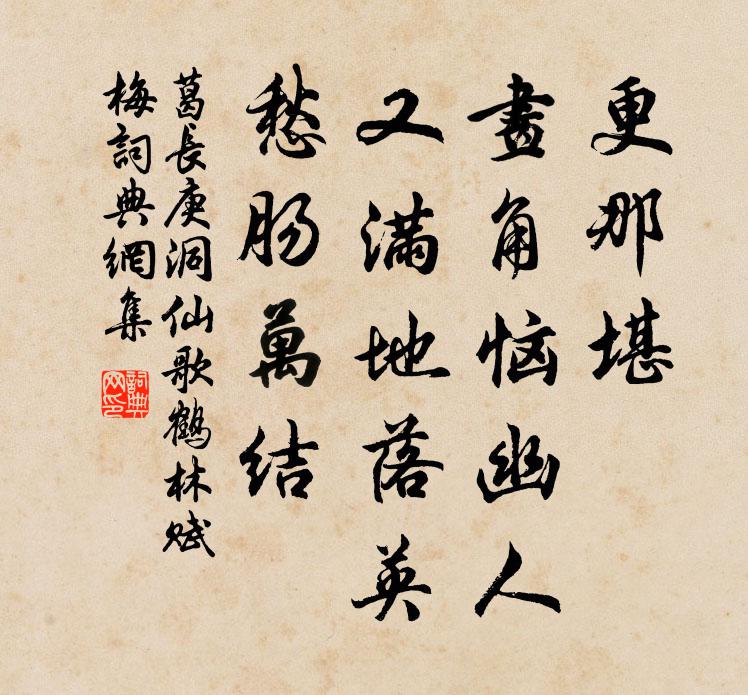 更那堪
畫角恼幽人
又滿地落英
愁肠萬结
葛長庚洞仙歌鶴林賦
梅詞典網集
詞典
网印